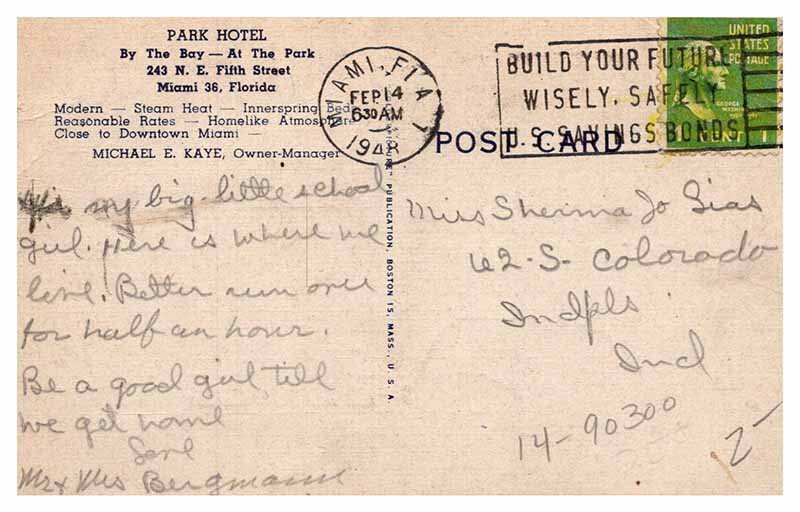 PARK HOTEL
By The Bay — At The Park
243 N. E. Fifth Street
Miami 36, Florida
Modern — Steam Heat — Innerspring Beds
Reasonable Rates — Homelike Atmosphere
Close to Downtown Miami —
MICHAEL E. KAYE, Owner-Manager
MIAMI, FLA
FEB 14
630 AM
1948
BUILD YOUR FUTURE
WISELY, SAFELY
U.S. SAVINGS BONDS
UNITED
STATES
POSTAGE
GEORGE
1
POST CARD
PUBLICATION, BOSTON 15, MASS., U. S. A.
my big little school
girl. Here is where we
live. Better run over
for half an hour.
Be a good girl till
we get home
Mr & Mrs Bergmann
Miss Sherma Jo Sias
62-S- Colorado
Indpls
Ind
14-90300
2-